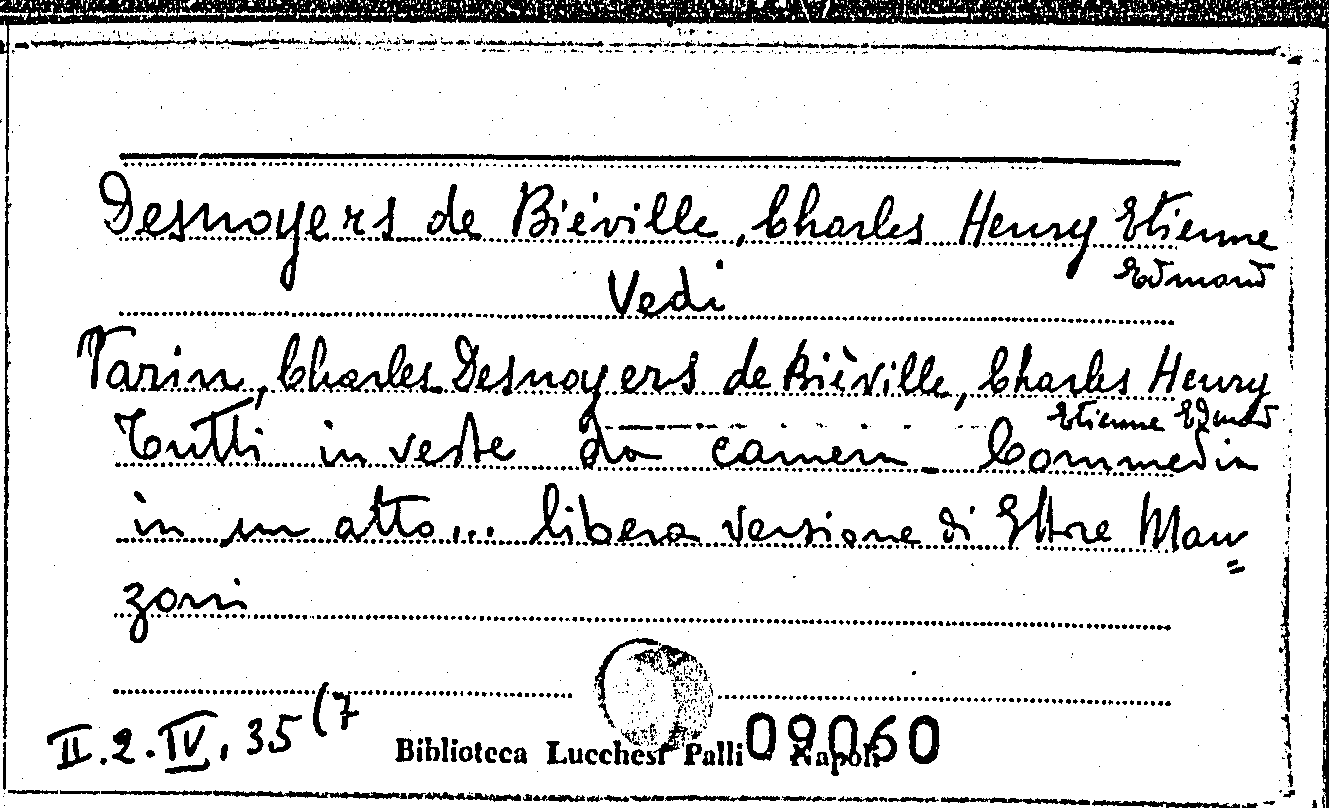 Desnoyers de Biéville, Charles Henry Etienne
Edmond
Vedi
Varin, Charles Desnoyers de Bièville, Charles Henry
Etienne Edmond
Tutti in veste da camera. Commedia
in un atto... libera versione di Ettore Man=
zoni
II.2.IV.35(7
Biblioteca Lucchesi Palli Napoli
09060